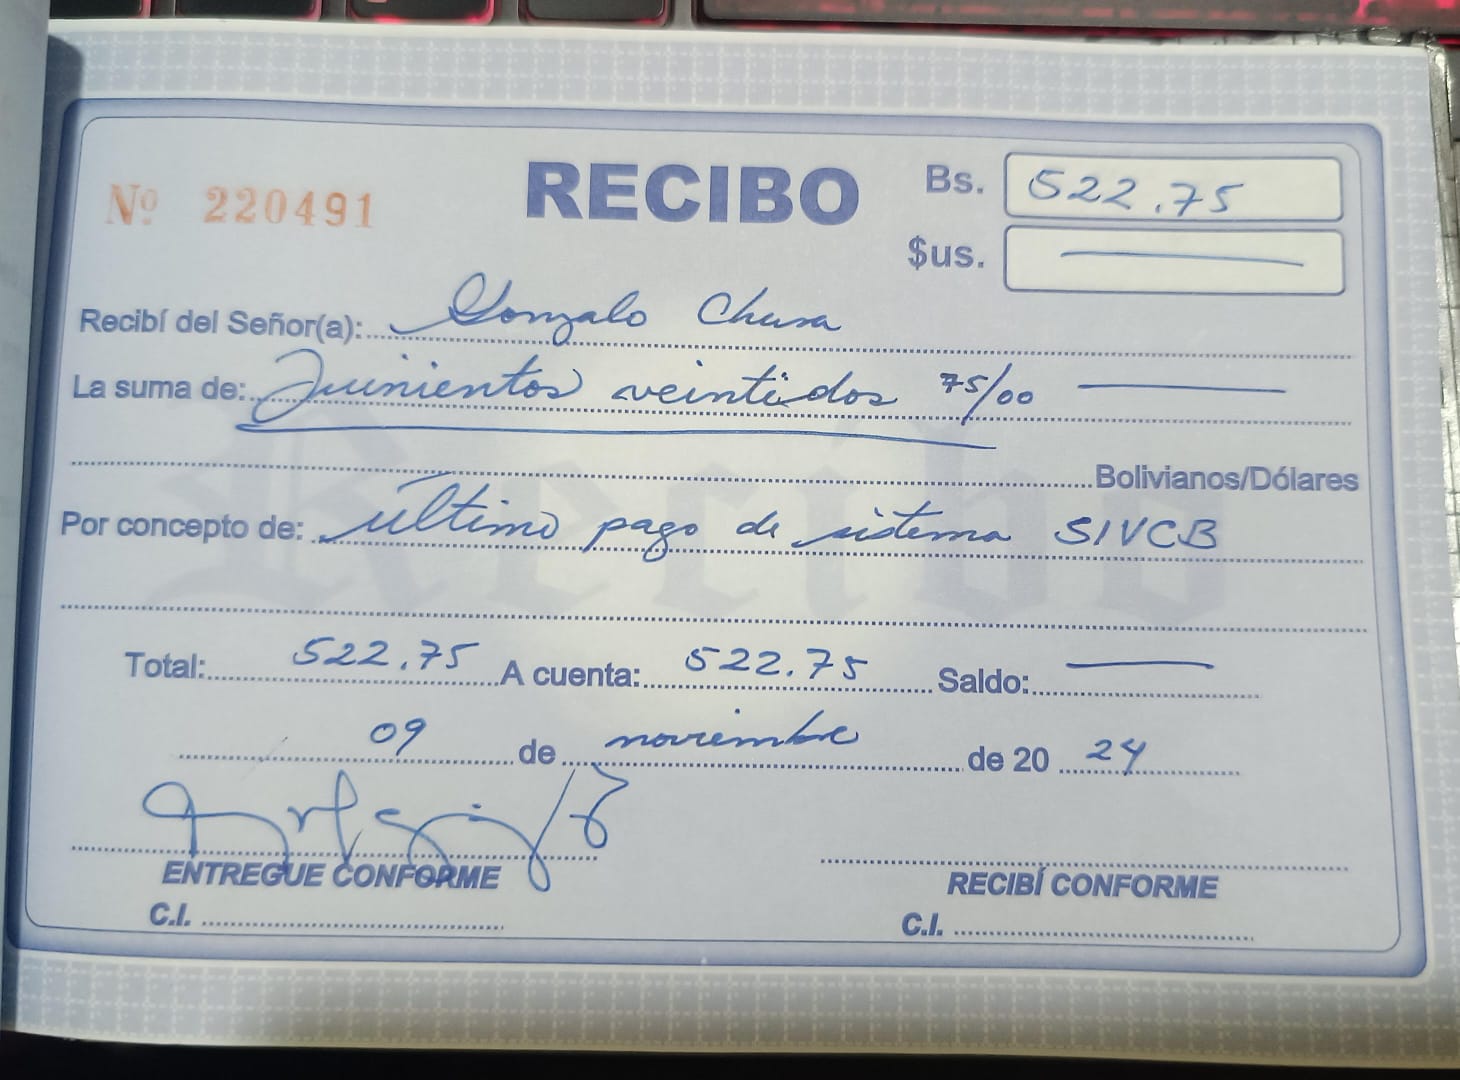 Nº 220491
RECIBO
Bs. 522.75
$us.
Recibí del Señor(a): Gonzalo Chura
La suma de: Quinientos veintidos 75/00
Bolivianos/Dólares
Por concepto de: último pago de sistema SIVCB
Total: 522.75 A cuenta: 522.75 Saldo:
09 de noviembre de 20 24
ENTREGUE CONFORME
RECIBÍ CONFORME
C.I.
C.I.
Recibo